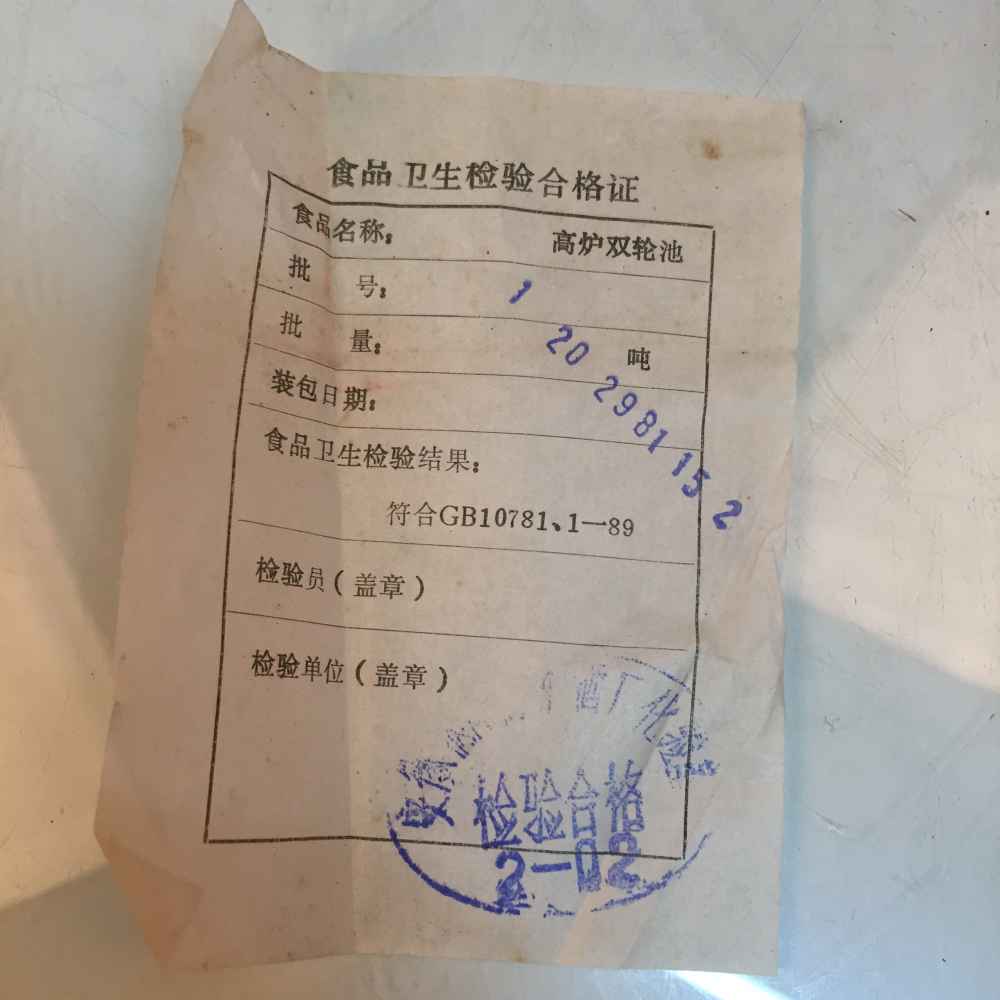 食品卫生检验合格证
食品名称： 高炉双轮池
批 号： 1
批 量： 20 吨
装包日期： 2981 15 2
食品卫生检验结果：
符合GB10781、1—89
检验员（盖章）
检验单位（盖章）
酒厂化
检验合格
2-02